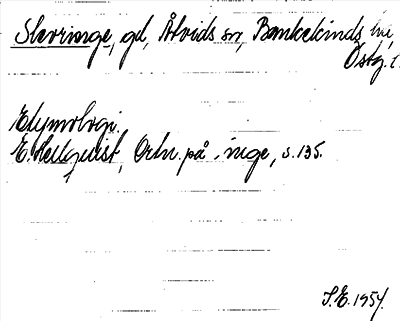 Slevringe, gd, Åtvids sn, Bankekinds hd,
Östg. l.
Etymologi.
E. Hellquist, Ortn. på -inge, s. 135.
S.E. 1954.